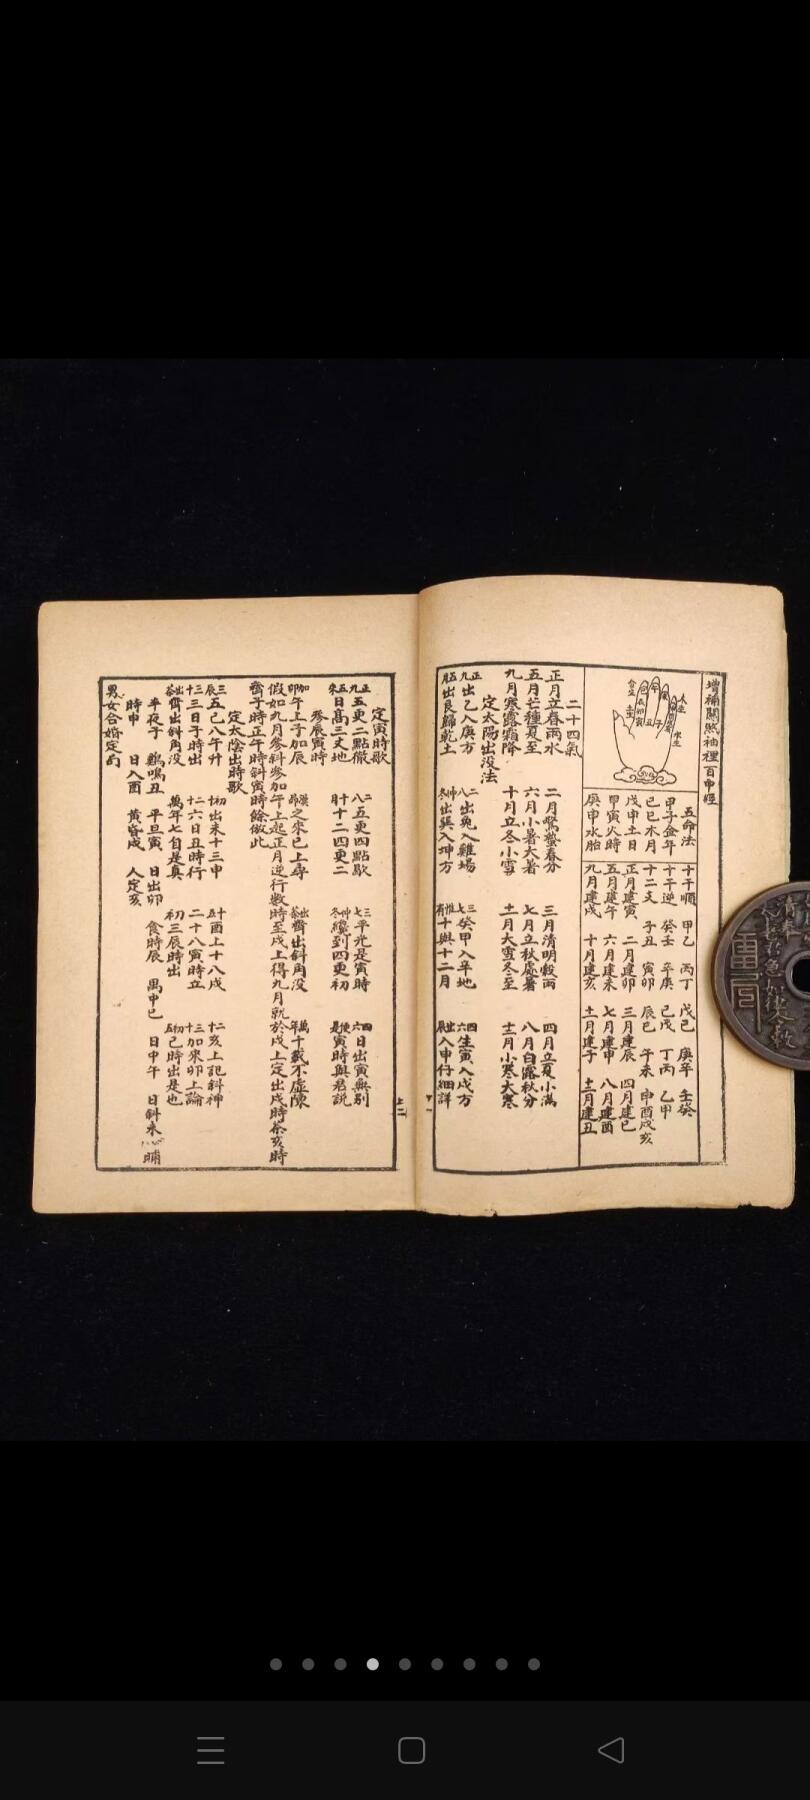 增補關煞袖裡百中經
五命法
甲子金年
己巳木月
戊申土日
甲寅火時
庚申水胎
十干順 甲乙 丙丁 戊己 庚辛 壬癸
十干逆 癸壬 辛庚 己戊 丁丙 乙甲
十二支 子丑 寅卯 辰巳 午未 申酉戌亥
正月建寅 二月建卯 三月建辰 四月建巳
五月建午 六月建未 七月建申 八月建酉
九月建戌 十月建亥 十一月建子 十二月建丑
二十四氣
正月立春雨水 二月驚蟄春分 三月清明穀雨 四月立夏小滿
五月芒種夏至 六月小暑大暑 七月立秋處暑 八月白露秋分
九月寒露霜降 十月立冬小雪 十一月大雪冬至 十二月小寒大寒
定太陽出没法
正九出乙入庚方 二八出兔入雞場 三七癸甲入辛地 四六生寅入戌方
五月出艮歸乾土 仲冬出巽入坤方 惟有十與十二月 出辰入申仔細詳
定寅時歌
正九五更二點徹 二八五更四點歇 三七平光是寅時 四六日出寅無别
五月日高三丈地 十月十二四更二 仲冬纔到四更初 便是寅時與君説
參辰寅時
加卯午上子加辰 之來巳上尋 出茶齊出斜角没 萬年千載不虛陳
假如九月參斜參加午上起正月逆行數時至戌上得九月就於戌上定出戌時茶亥時
齊子時正午時斜寅時餘倣此
定太陰出時歌
三辰五巳八午升 初十出未十三申 十五酉上十八戌 二十亥上記斜神
二十三日子時出 二十六日丑時行 二十八寅時立 三十加來卯上論
出茶齊出斜角没 萬年七自是真 初三辰時出 初五巳時出是也
半夜子 雞鳴丑 平旦寅 日出卯 食時辰 禺中巳 日中午 日斜未 晡
時申 日入酉 黄昏戌 人定亥
男女合婚定局